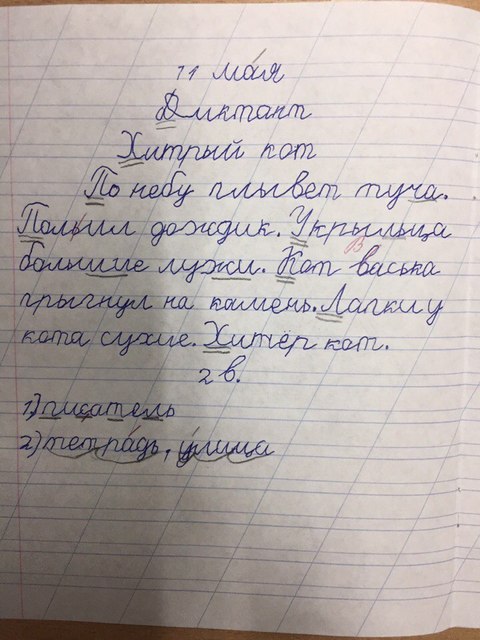 11 мая
Диктант
Хитрый кот
По небу плывет туча.
Польил дождик. Укрыльца
В
большие лужи. Кот васька
прыгнул на камень. Лапки у
кота сухие. Хитёр кот.
2 в.
1) писатель
2) тетрадь, улица